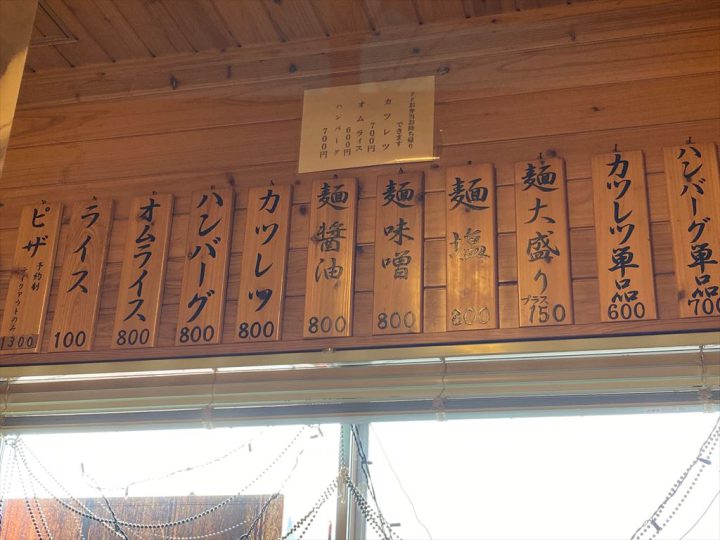 お弁当お持ち帰り
できます
カツレツ
700円
オムライス
600円
ハンバーグ
700円
ハンバーグ単品
700
カツレツ単品
600
麺大盛り
プラス
150
麺 塩
800
麺 味噌
800
麺 醤油
800
カツレツ
800
ハンバーグ
800
オムライス
800
ライス
100
ピザ
予約制
テイクアウトのみ
1300